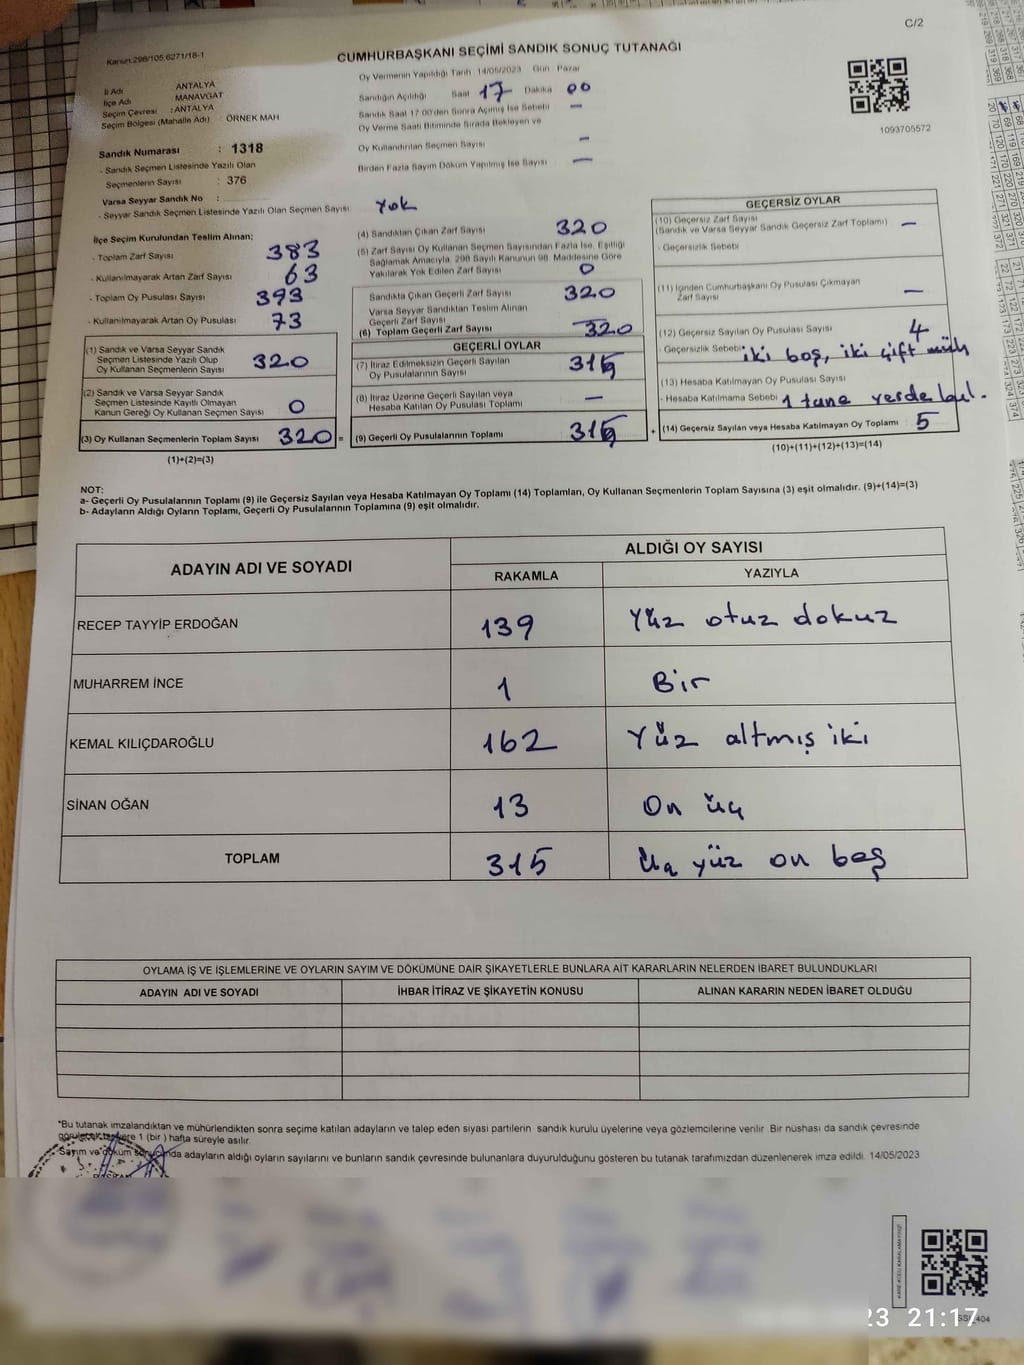 C/2
Kanun:298/105;6271/18-1
CUMHURBAŞKANI SEÇİMİ SANDIK SONUÇ TUTANAĞI
İl Adı ANTALYA
İlçe Adı MANAVGAT
Seçim Çevresi : ANTALYA
Seçim Bölgesi (Mahalle Adı) : ÖRNEK MAH
Sandık Numarası : 1318
- Sandık Seçmen Listesinde Yazılı Olan
Seçmenlerin Sayısı : 376
Varsa Seyyar Sandık No :
- Seyyar Sandık Seçmen Listesinde Yazılı Olan Seçmen Sayısı: Yok
Oy Vermenin Yapıldığı Tarih 14/05/2023 Gün Pazar
Sandığın Açıldığı Saat 17 Dakika 00
Sandık Saat 17:00'den Sonra Açılmış İse Sebebi -
Oy Verme Saati Bitiminde Sırada Bekleyen ve
Oy Kullandırılan Seçmen Sayısı -
Birden Fazla Sayım Döküm Yapılmış İse Sayısı -
1093705572
İlçe Seçim Kurulundan Teslim Alınan;
- Toplam Zarf Sayısı 383
- Kullanılmayarak Artan Zarf Sayısı 63
- Toplam Oy Pusulası Sayısı 393
- Kullanılmayarak Artan Oy Pusulası 73
(1) Sandık ve Varsa Seyyar Sandık
Seçmen Listesinde Yazılı Olup
Oy Kullanan Seçmenlerin Sayısı 320
(2) Sandık ve Varsa Seyyar Sandık
Seçmen Listesinde Kayıtlı Olmayan
Kanun Gereği Oy Kullanan Seçmen Sayısı 0
(3) Oy Kullanan Seçmenlerin Toplam Sayısı 320 =
(1)+(2)=(3)
(4) Sandıktan Çıkan Zarf Sayısı 320
(5) Zarf Sayısı Oy Kullanan Seçmen Sayısından Fazla İse, Eşitliği
Sağlamak Amacıyla, 298 Sayılı Kanunun 98. Maddesine Göre
Yakılarak Yok Edilen Zarf Sayısı 0
Sandıkta Çıkan Geçerli Zarf Sayısı 320
Varsa Seyyar Sandıktan Teslim Alınan
Geçerli Zarf Sayısı -
(6) Toplam Geçerli Zarf Sayısı 320
GEÇERLİ OYLAR
(7) İtiraz Edilmeksizin Geçerli Sayılan
Oy Pusulalarının Sayısı 315
(8) İtiraz Üzerine Geçerli Sayılan veya
Hesaba Katılan Oy Pusulası Toplamı -
(9) Geçerli Oy Pusulalarının Toplamı 315 +
GEÇERSİZ OYLAR
(10) Geçersiz Zarf Sayısı
(Sandık ve Varsa Seyyar Sandık Geçersiz Zarf Toplamı) -
- Geçersizlik Sebebi
(11) İçinden Cumhurbaşkanı Oy Pusulası Çıkmayan
Zarf Sayısı -
(12) Geçersiz Sayılan Oy Pusulası Sayısı 4
- Geçersizlik Sebebi iki boş, iki çift müh
(13) Hesaba Katılmayan Oy Pusulası Sayısı
- Hesaba Katılmama Sebebi 1 tane yerde bul.
(14) Geçersiz Sayılan veya Hesaba Katılmayan Oy Toplamı : 5
(10)+(11)+(12)+(13)=(14)
NOT:
a- Geçerli Oy Pusulalarının Toplamı (9) ile Geçersiz Sayılan veya Hesaba Katılmayan Oy Toplamı (14) Toplamları, Oy Kullanan Seçmenlerin Toplam Sayısına (3) eşit olmalıdır. (9)+(14)=(3)
b- Adayların Aldığı Oyların Toplamı, Geçerli Oy Pusulalarının Toplamına (9) eşit olmalıdır.
ADAYIN ADI VE SOYADI
ALDIĞI OY SAYISI
RAKAMLA YAZIYLA
RECEP TAYYİP ERDOĞAN 139 Yüz otuz dokuz
MUHARREM İNCE 1 Bir
KEMAL KILIÇDAROĞLU 162 Yüz altmış iki
SİNAN OĞAN 13 On üç
TOPLAM 315 Üç yüz on beş
OYLAMA İŞ VE İŞLEMLERİNE VE OYLARIN SAYIM VE DÖKÜMÜNE DAİR ŞİKAYETLERLE BUNLARA AİT KARARLARIN NELERDEN İBARET BULUNDUKLARI
ADAYIN ADI VE SOYADI İHBAR İTİRAZ VE ŞİKAYETİN KONUSU ALINAN KARARIN NEDEN İBARET OLDUĞU
*Bu tutanak imzalandıktan ve mühürlendikten sonra seçime katılan adayların ve talep eden siyasi partilerin sandık kurulu üyelerine veya gözlemcilerine verilir Bir nüshası da sandık çevresinde
1 (bir ) hafta süreyle asılır.
Sayım ve döküm adayların aldığı oyların sayılarını ve bunların sandık çevresinde bulunanlara duyurulduğunu gösteren bu tutanak tarafımızdan düzenlenerek imza edildi. 14/05/2023
KARE KODU KARALAMAYINIZ!
23 21:17